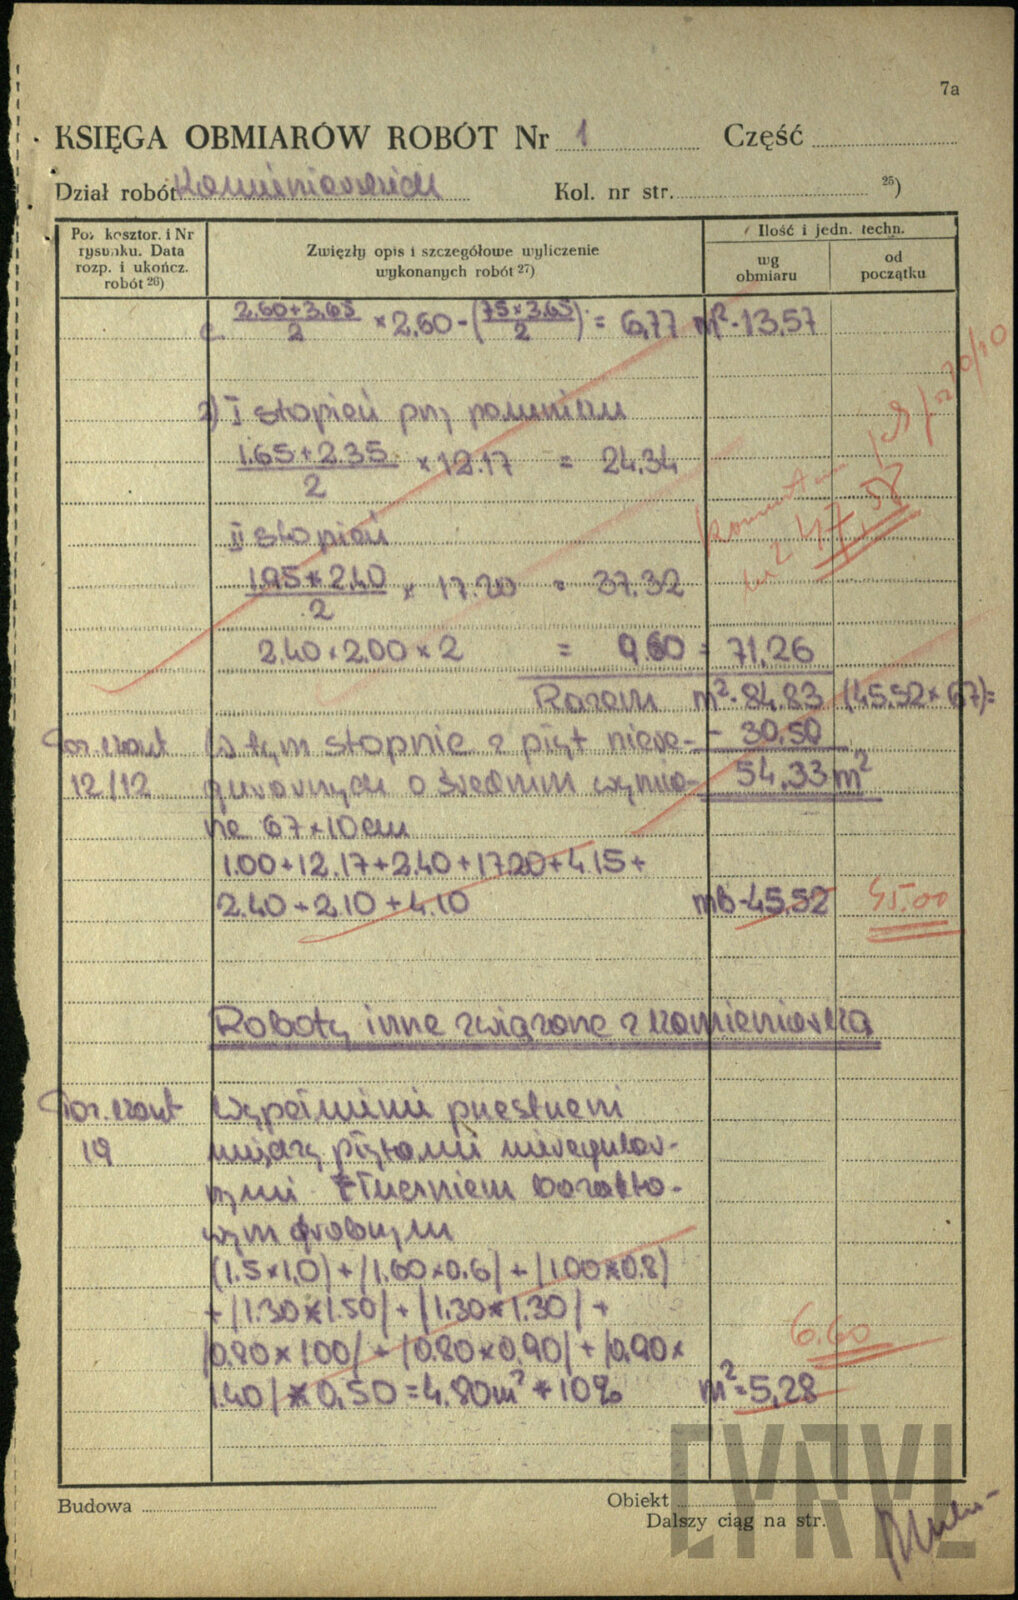 7a
KSIĘGA OBMIARÓW ROBÓT Nr 1 Część
Dział robót Kamieniarskich Kol. nr str. 25)
Poz kosztor. i Nr rysunku. Data rozp. i ukończ. robót 26)
Zwięzły opis i szczegółowe wyliczenie wykonanych robót 27)
Ilość i jedn. techn.
wg obmiaru
od początku
c. 2.60+3.65/2 × 2.60 - (75×3.65/2) = 6,77 m² - 13.57
2) I stopień przy pomniku
1.65+2.35/2 × 12.17 = 24.34
II stopień
1.95×2.40/2 × 17.20 = 37.32
2.40 × 2.00 × 2 = 9.60 = 71,26
Razem m² - 84.83 (45.52×67)=
Poz. kont (w tym stopnie z płyt niere- - 30.50
12/12 gularnych o średnim wymia- 54,33 m²
rze 67×10cm
1.00+12.17+2.40+17.20+4.15+
2.40+2.10+4.10 mb - 45,52 45.00
47,58
Roboty inne związane z kamieniarką
Wypełnienie przestrzeni
19 między płytami nieregular-
nymi tłuczniem bazalto-
wym drobnym
(1.5×1,0)+/1.60×0.6/+/1.00×0.8)
+/1.30×1.50/+/1.30×1.30/+
/0.80×1.00/+/0.80×0.90/+/0.90×
1.40/×0,50=4.80m²+10% m²=5,28
6.60
Budowa Obiekt
Dalszy ciąg na str.
CYRYL